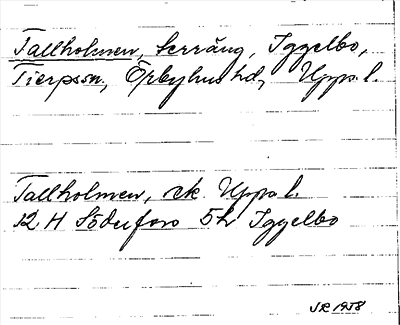 Tallholmen, terräng, Iggelbo,
Tierps sn, Örbyhus hd, Upps. l.
Tallholmen, ek. Upps. l.
12 H Söderfors 5h Iggelbo
SR 1958